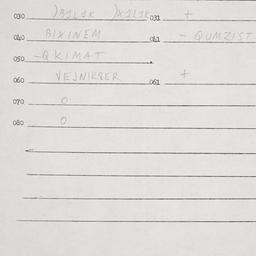 030 )B1L1K )X1L1K 031 +
040 BIXINEM 041 - QUMZIST
050 -QKIMAT
060 VEJNIKQER 061 +
070 0
080 0